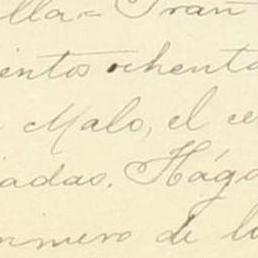 lla= Trañ
ientos ochenta
Malo, el ce
iadas. Hága
rimero de lo